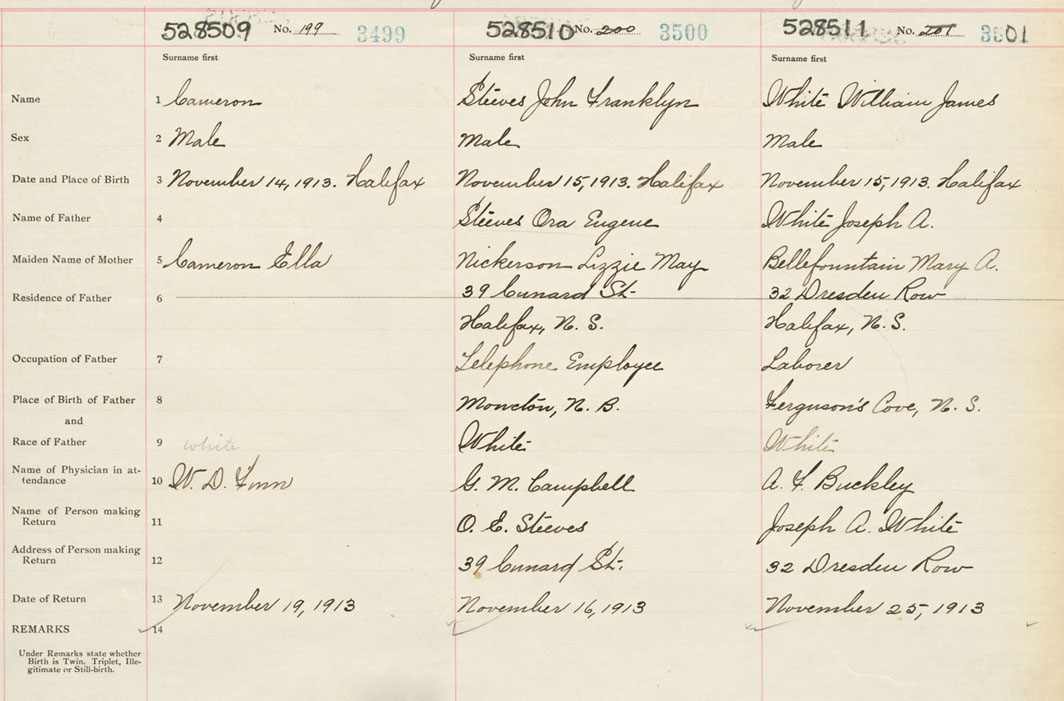 528509 No. 199 3499 528510 No. 200 3500 528511 No. 201 3501
Surname first Surname first Surname first
Name 1 Cameron Steeves John Franklyn White William James
Sex 2 Male Male Male
Date and Place of Birth 3 November 14, 1913. Halifax November 15, 1913. Halifax November 15, 1913. Halifax
Name of Father 4 Steeves Ora Eugene White Joseph A.
Maiden Name of Mother 5 Cameron Ella Nickerson Lizzie May Bellefountain Mary A.
Residence of Father 6 39 Cunard St. 32 Dresden Row
Halifax, N. S. Halifax, N. S.
Occupation of Father 7 Telephone Employee Laborer
Place of Birth of Father 8 Moncton, N. B. Ferguson's Cove, N. S.
and
Race of Father 9 white White White
Name of Physician in at-
tendance 10 W. D. Finn G. M. Campbell A. F. Buckley
Name of Person making
Return 11 O. E. Steeves Joseph A. White
Address of Person making
Return 12 39 Cunard St. 32 Dresden Row
Date of Return 13 November 19, 1913 November 16, 1913 November 25, 1913
REMARKS 14
Under Remarks state whether
Birth is Twin, Triplet, Ille-
gitimate or Still-birth.